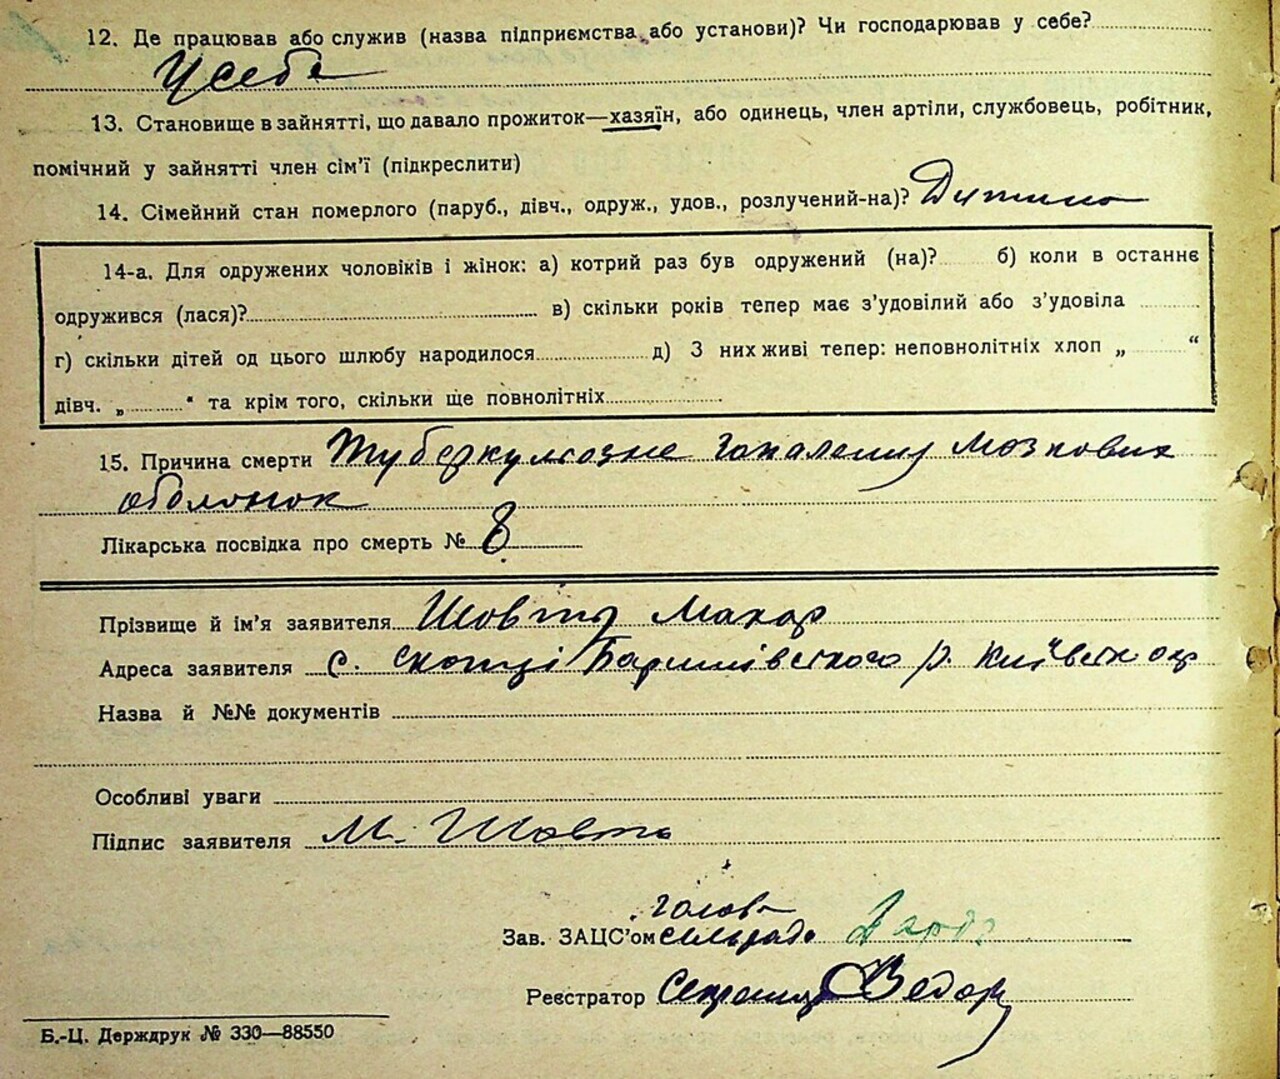 12. Де працював або служив (назва підприємства, або установи)? Чи господарював у себе?
У себе
13. Становище в зайнятті, що давало прожиток—хазяїн, або одинець, член артіли, службовець, робітник,
помічний у зайнятті член сім'ї (підкреслити)
14. Сімейний стан померлого (паруб., дівч., одруж., удов., розлучений-на)? Дитина
14-а. Для одружених чоловіків і жінок: а) котрий раз був одружений (на)? б) коли в останнє
одружився (лася)? в) скільки років тепер має з'удовілий або з'удовіла
г) скільки дітей од цього шлюбу народилося д) З них живі тепер: неповнолітніх хлоп „ “
дівч. „ “ та крім того, скільки ще повнолітніх
15. Причина смерти Туберкульозне запалення мозкових
оболонок
Лікарська посвідка про смерть № 8
Прізвище й ім'я заявителя Шовть Макар
Адреса заявителя с. Скопці Баришівского р. Київськ окр
Назва й №№ документів
Особливі уваги
Підпис заявителя М. Шовть
голова
Зав. ЗАЦС'ом сельради
Реєстратор Секретар
Б.-Ц. Держдрук № 330—88550